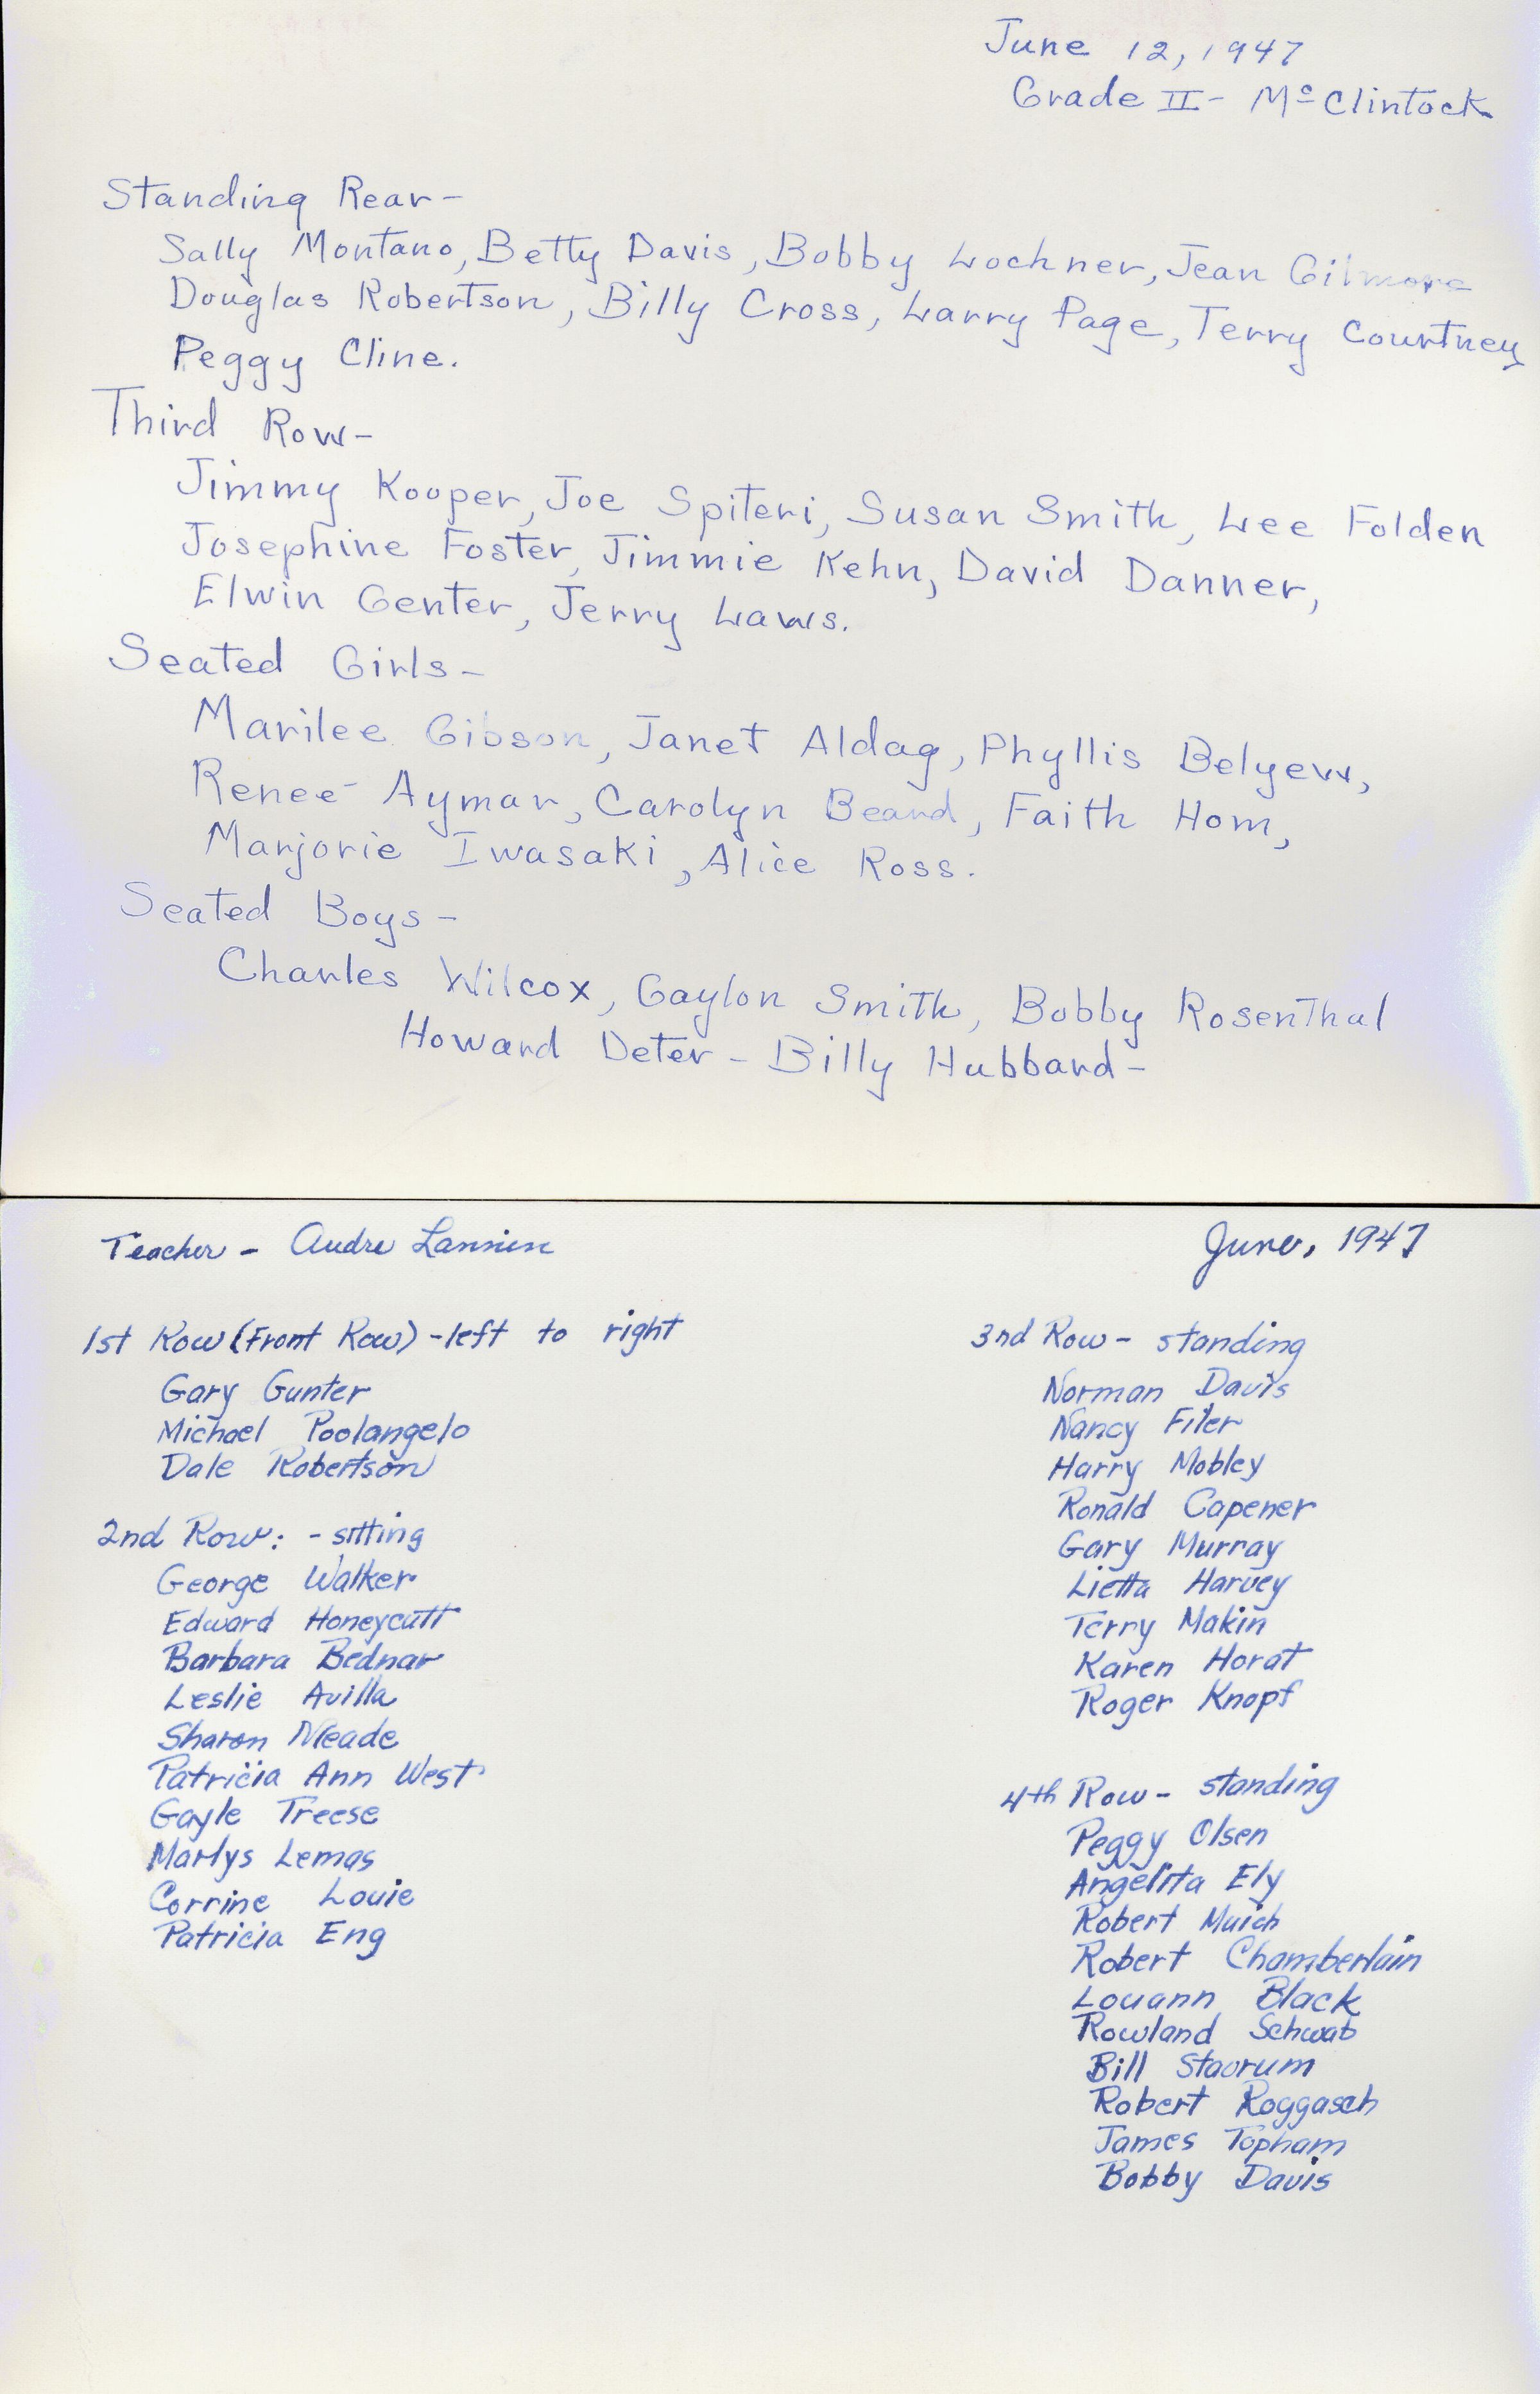 June 12, 1947
Grade II - McClintock
Standing Rear -
Sally Montano, Betty Davis, Bobby Lochner, Jean Gilmore
Douglas Robertson, Billy Cross, Larry Page, Terry Courtney
Peggy Cline.
Third Row -
Jimmy Kooper, Joe Spiteri, Susan Smith, Lee Folden
Josephine Foster, Jimmie Kehn, David Danner,
Elwin Genter, Jerry Laws.
Seated Girls -
Marilee Gibson, Janet Aldag, Phyllis Belyew,
Renee Aymar, Carolyn Beard, Faith Hom,
Marjorie Iwasaki, Alice Ross.
Seated Boys -
Charles Wilcox, Gaylon Smith, Bobby Rosenthal
Howard Deter - Billy Hubbard -
Teacher - Audre
June, 1947
1st Row (Front Row) - left to right
Gary Gunter
Michael Poolangelo
Dale Robertson
2nd Row: - sitting
George Walker
Edward Honeycutt
Barbara Bednar
Leslie Avilla
Sharon Meade
Patricia Ann West
Gayle Treese
Marlys Lemas
Corrine Louie
Patricia Eng
3rd Row - standing
Norman Davis
Nancy Filer
Harry Mobley
Ronald Capener
Gary Murray
Lietta Harvey
Terry Makin
Karen Horat
Roger Knopf
4th Row - standing
Peggy Olsen
Angelita Ely
Robert Muich
Robert Chamberlain
Louann Black
Rowland Schwab
Bill Staorum
Robert Roggasch
James Topham
Bobby Davis